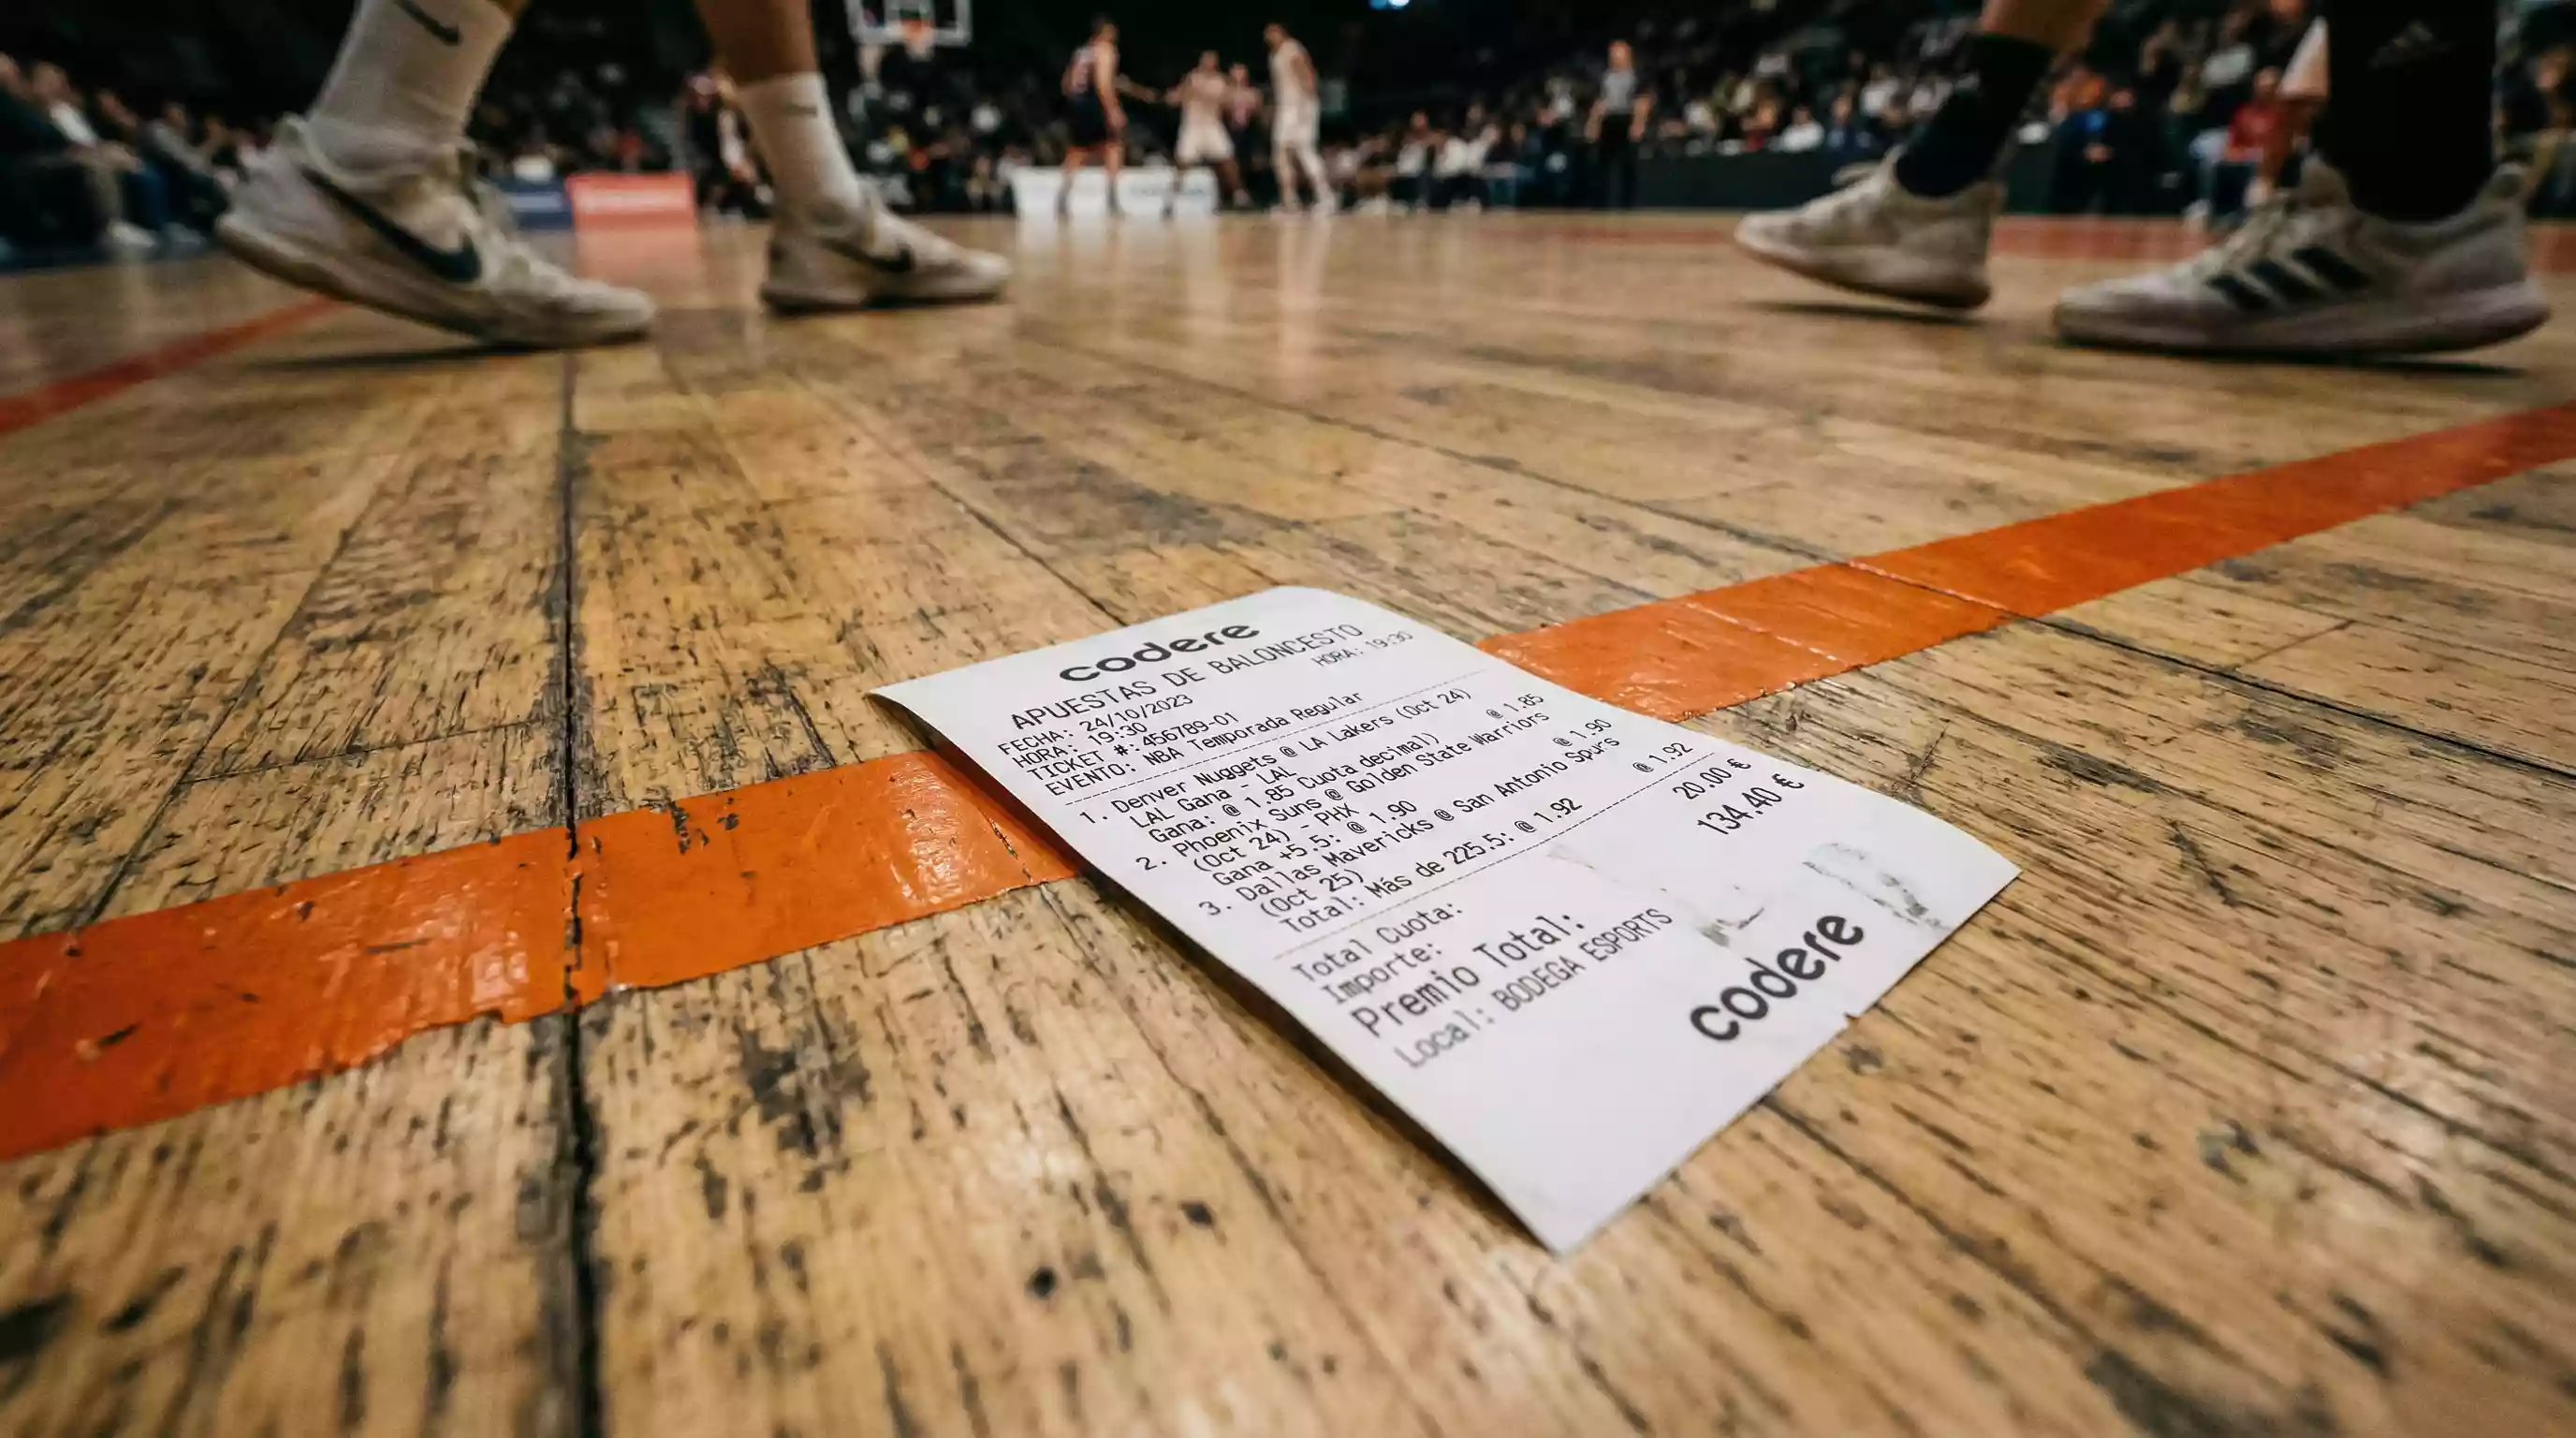 codere
APUESTAS DE BALONCESTO
FECHA: 24/10/2023 HORA: 19:30
HORA: 19:30
TICKET #: 456789-01
EVENTO: NBA Temporada Regular
1. Denver Nuggets @ LA Lakers (Oct 24)
LAL Gana - LAL @ 1.85
Gana: @ 1.85 Cuota decimal)
2. Phoenix Suns @ Golden State Warriors
(Oct 24) - PHX @ 1.90
Gana +5.5: @ 1.90
3. Dallas Mavericks @ San Antonio Spurs
(Oct 25) @ 1.92
Total: Más de 225.5: @ 1.92
Total Cuota: 20.00 €
Importe: 134.40 €
Premio Total:
Local: BODEGA ESPORTS
codere